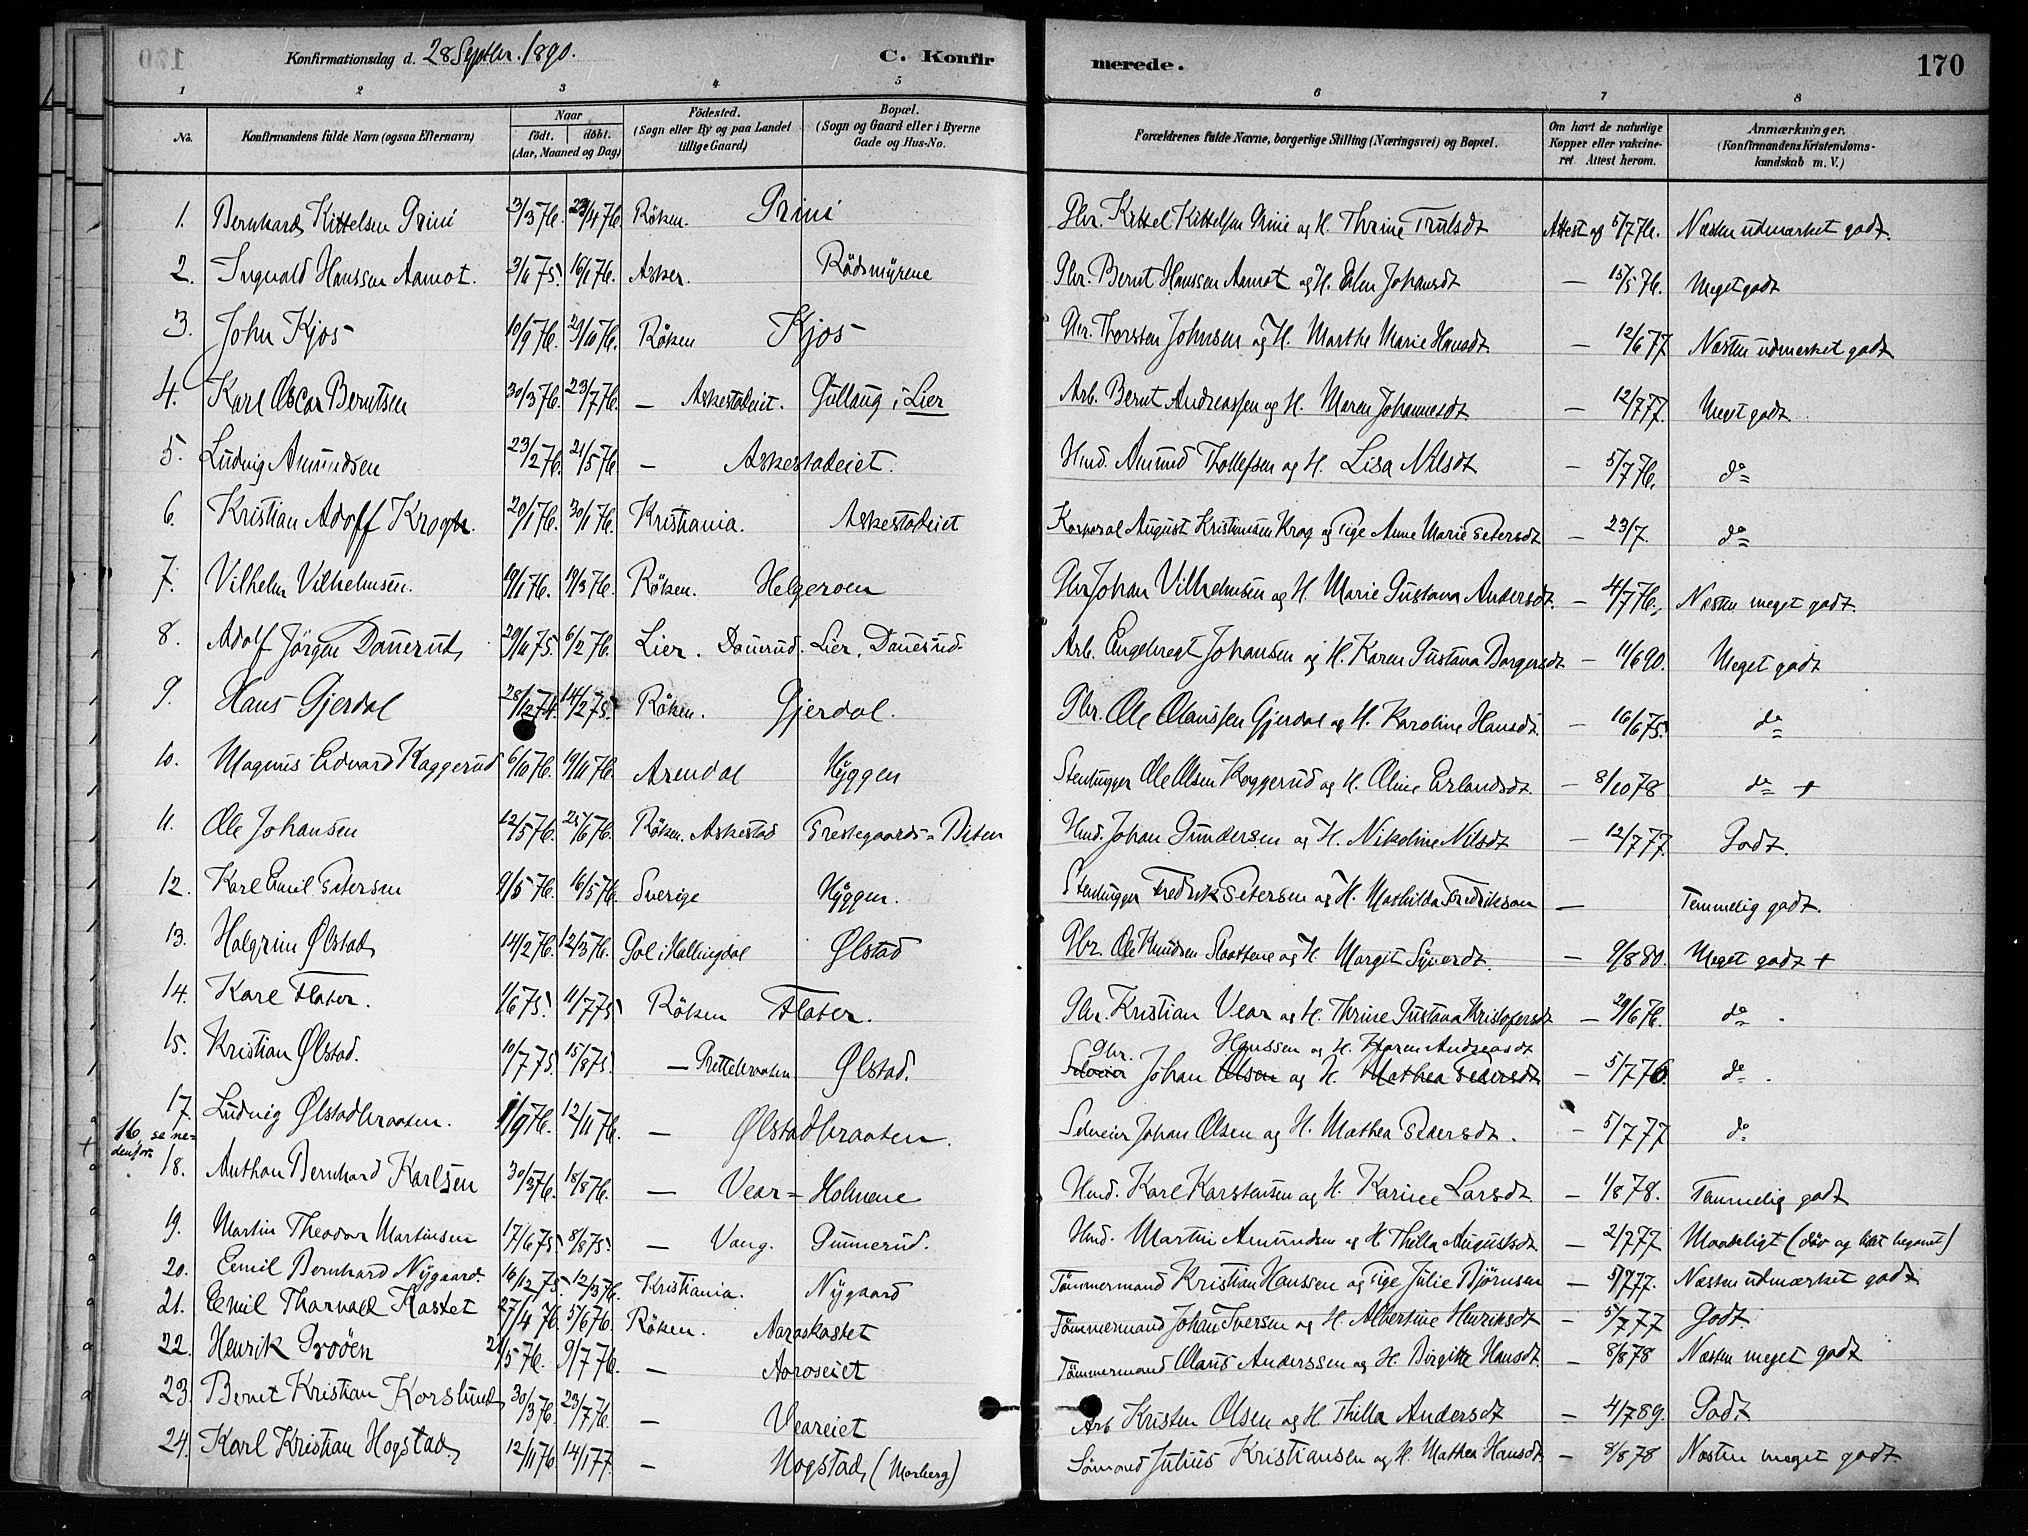 170
Konfirmationsdag d. 28 Septbr. 1890.
C. Konfirmerede.
1 2 3 4 5 6 7 8
No. Konfirmandens fulde Navn (ogsaa Efternavn) Naar födt. döbt. (Aar, Maaned og Dag) Födested. (Sogn eller By og paa Landet tillige Gaard) Bopæl. (Sogn og Gaard eller i Byerne Gade og Hus-No. Forældrenes fulde Navne, borgerlige Stilling (Næringsvei) og Bopæl. Om havt de naturlige Kopper eller vakcineret Attest herom. Anmærkninger. (Konfirmandens Kristendomskundskab m. V.)
1. Bernhard Kittelsen Grini 3/3 76. 23/4 76. Röken. Grini Gbr. Kittel Kittelsen Grini og H. Thrine Trulsdt Attest af 5/7 76. Næsten udmærket godt.
2. Ingvald Hanssen Aamot. 3/11 75. 16/1 76. Asker. Rödsmyrene Gbr. Bernt Hanssen Aamot og H. Elen Johansdt — 15/5 76. Meget godt
3. John Kjos 10/9 76. 29/10 76. Röken Kjos Gbr. Thorsten Johnsen og H. Marthe Marie Hansdt — 12/6 77 Næsten udmerket godt
4. Karl Oscar Berntsen 30/3 76. 23/7 76. — Askestadeiet. Gullaug i Lier Arb. Bernt Andreassen og H. Maren Johannesdt — 12/7 77. Meget godt.
5. Ludvig Amundsen 23/2 76. 21/5 76. — Askestadeiet. Hmd. Amund Thollefsen og H. Lisa Nilsdt — 5/7 76. do
6. Kristian Adolf Krogh. 20/1 76. 30/1 76. Kristiania. Askestadeiet Korporal August Kristiansen Krog og Pige Anne Marie Petersdt — 23/7. do
7. Vilhelm Vilhelmsen. 19/1 76. 19/3 76. Röken. Helgeroen Gbr Johan Vilhelmsen og H. Marie Gustava Andersdt. — 4/7 76. Næsten meget godt.
8. Adolf Jörgen Dauerud 29/11 75. 6/2 76. Lier. Dauerud. Lier, Dauerud. Arb. Engebregt Johansen og H. Karen Gustava Borgersdt — 11/6 90. Meget godt
9. Hans Gjerdal 28/12 74. 14/2 75. Röken. Gjerdal. Gbr. Ole Olaussen Gjerdal og H. Karoline Hansdt. — 16/6 75. do
10. Magnus Edvard Kaggerud 6/10 76. 19/11 76. Arendal Hyggen Stenhugger Ole Olsen Kaggerud og H. Oline Erlandsdt. — 8/10 78 do +
11. Ole Johansen 12/5 76. 25/6 76. Röken. Askestad Prestegaards-Biten Hmd. Johan Gundersen og H. Nikoline Nilsdt — 12/7 77. Godt.
12. Karl Emil Petersen 9/5 76. 16/5 76. Sverige Hyggen. Stenhugger Fredrik Petersen og H. Mathilda Fredrikson — Temmelig godt.
13. Halgrim Ølstad 14/2 76. 12/3 76. Gol i Hallingdal Ølstad Gbr. Ole Knudsen Slaattene og H. Margit Syversdt. — 9/8 80. Meget godt +
14. Karl Flater. 1/6 75. 11/7 75 Röken Flater. Gbr. Kristian Vear og H. Thrine Gustava Kristofersdt — 29/6 76. do.
15. Kristian Ølstad. 10/7 75. 15/8 75. — Grettebraaten Ølstad. Gbr. Hanssen og H. Karen Andreasdt
Selveier Johan Olsen og H. Mathea Pedersdt — 5/7 76. do.
17. Ludvig Ølstadbraaten. 1/9 76. 12/11 76. — Ølstadbraaten. Selveier Johan Olsen og H. Mathea Pedersdt. — 5/7 77 do
16, se nedenfor.
18. Anthon Bernhard Karlsen 30/3 76. 18/8 76. — Vear-Holmene Hmd. Karl Karstensen og H. Karine Larsdt — 1/8 78. Temmelig godt
19. Martin Theodor Martinsen 17/6 75. 8/8 75. — Vang. Gunnerud. Hmd. Martin Amundsen og H Thilla Augustsdt — 2/7 77 Maadeligt (döv og lidet begavet)
20. Emil Bernhard Nygaard. 16/12 75. 12/3 76. Kristiania. Nygaard Tömmermand Kristian Hanssen og Pige Julie Bjørnsen — 5/7 77. Næsten udmærket godt
21. Emil Tharvald Kastet 27/4 76. 5/6 76. Röken. Aaroskastet Tömmermand Johan Iversen og H Albertine Henriksdt — 5/7 77 Godt.
22. Henrik Groöen 21/5 76. 9/7 76. — Aaroseiet Tömmermand Olaus Anderssen og H. Birgitte Hansdt. — 8/8 78 Næsten meget godt
23. Bernt Kristian Korslund 30/3 76. 23/7 76. — Veareiet Arb Kristen Olsen og H Thilla Andersdt — 4/7 89. Godt
24. Karl Kristian Hogstad 12/11 76. 14/1 77. — Hogstad (Morberg) Sömand Julius Kristiansen og H. Mathea Hansdt. — 8/8 78 Næsten meget godt